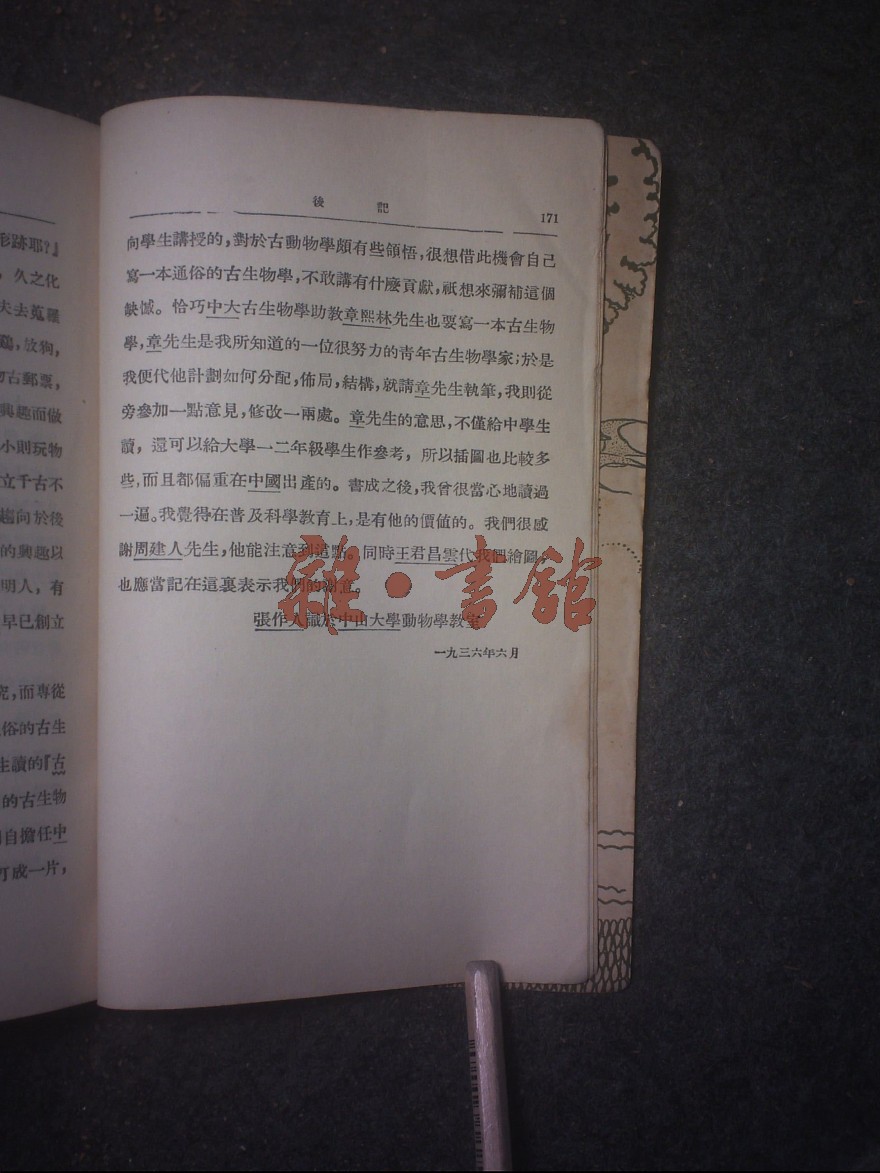 形跡耶?』
,久之化
夫去蒐羅
鷄,放狗,
古郵票,
興趣而做
小則玩物
立千古不
趨向於後
的興趣以
明人,有
早已創立
究,而專從
俗的古生
生讀的『古
的古生物
自擔任中
打成一片,
後記 171
向學生講授的,對於古動物學頗有些領悟,很想借此機會自己
寫一本通俗的古生物學,不敢講有什麼貢獻,祇想來彌補這個
缺憾。恰巧中大古生物學助教章熙林先生也要寫一本古生物
學,章先生是我所知道的一位很努力的靑年古生物學家;於是
我便代他計劃如何分配,佈局,結構,就請章先生執筆,我則從
旁參加一點意見,修改一兩處。章先生的意思,不僅給中學生
讀,還可以給大學一二年級學生作參考,所以插圖也比較多
些,而且都偏重在中國出產的。書成之後,我曾很當心地讀過
一遍。我覺得在普及科學教育上,是有他的價值的。我們很感
謝周建人先生,他能注意到這點。同時王君昌雲代我們繪圖,
也應當記在這裏表示我們的謝意。
張作人識於中山大學動物學教室
一九三六年六月
雜·書館